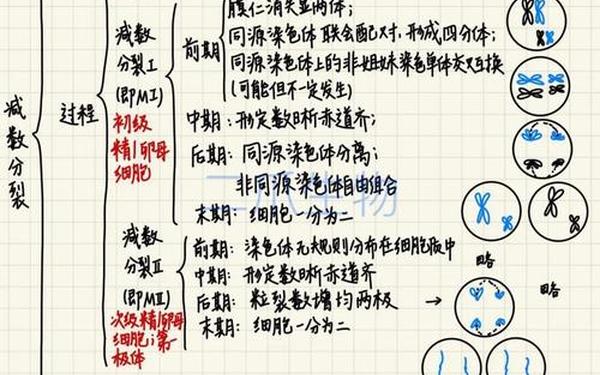 减数分裂
过程
减数
分裂Ⅰ
(即MⅠ)
初级
精/卵母
细胞
前期
膜仁消失显两体;
同源染色体联会配对,形成四分体;
同源染色体上的非姐妹染色单体交叉互换
(可能但不一定发生)
中期:形定数晰赤道齐;
后期:同源染色体分离;
非同源染色体自由组合
末期:细胞一分为二
减数
分裂Ⅱ
(即MⅡ)
次级精/卵母
细胞;第一
极体
前期:染色体无规则分布在细胞质中
中期:形定数晰赤道齐
后期:粒裂数增均两极 →
末期:细胞一分为二
略
略
二爪生物